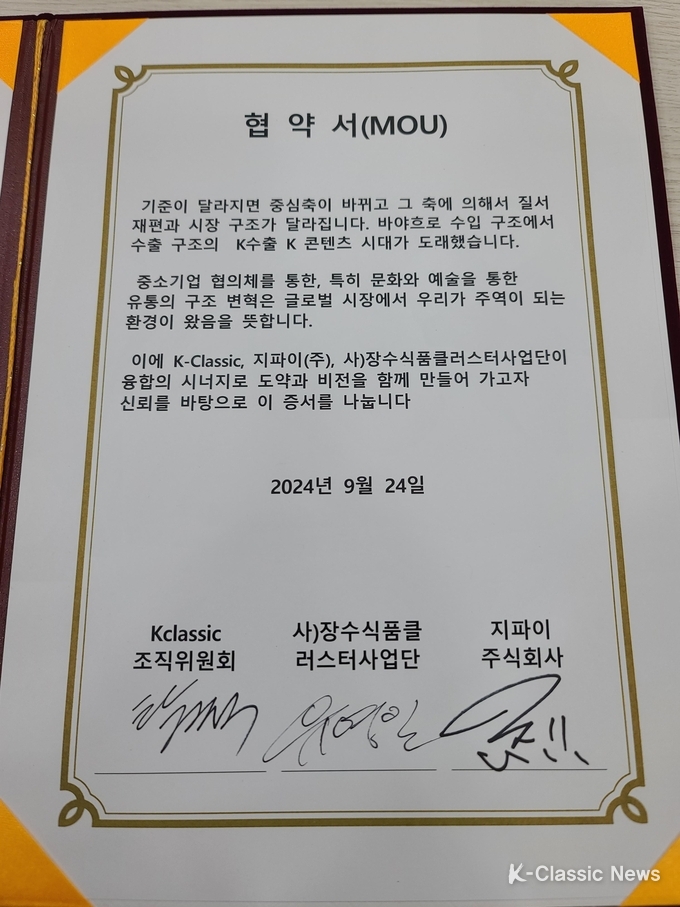 협 약 서(MOU)
기준이 달라지면 중심축이 바뀌고 그 축에 의해서 질서
재편과 시장 구조가 달라집니다. 바야흐로 수입 구조에서
수출 구조의 K수출 K 콘텐츠 시대가 도래했습니다.
중소기업 협의체를 통한, 특히 문화와 예술을 통한
유통의 구조 변혁은 글로벌 시장에서 우리가 주역이 되는
환경이 왔음을 뜻합니다.
이에 K-Classic, 지파이(주), 사)장수식품클러스터사업단이
융합의 시너지로 도약과 비전을 함께 만들어 가고자
신뢰를 바탕으로 이 증서를 나눕니다
2024년 9월 24일
Kclassic
조직위원회
사)장수식품클
러스터사업단
지파이
주식회사
K-Classic News